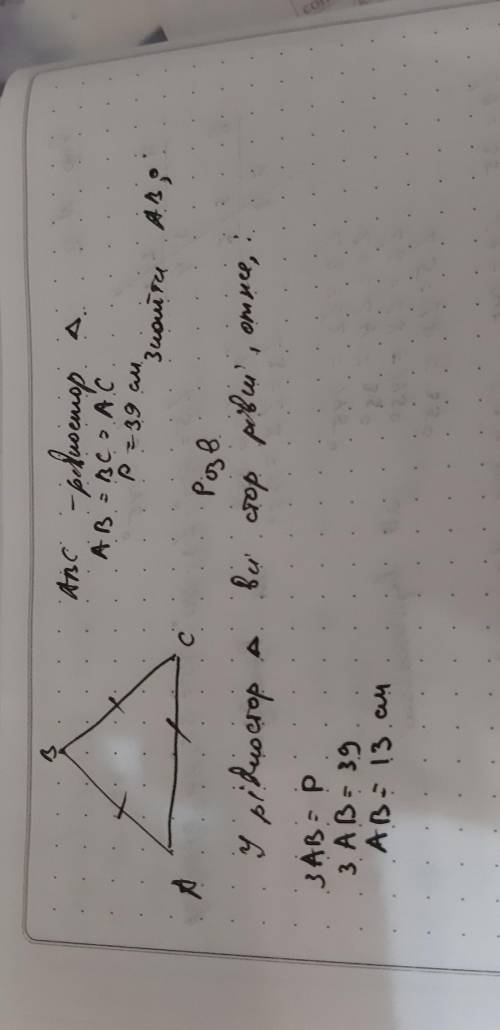 ABC - рівностор △
AB = BC = AC
P = 39 см
Знайти AB;
B
A
C
Розв
У рівностор △ всі стор рівні, отже,:
3AB = P
3AB = 39
AB = 13 см